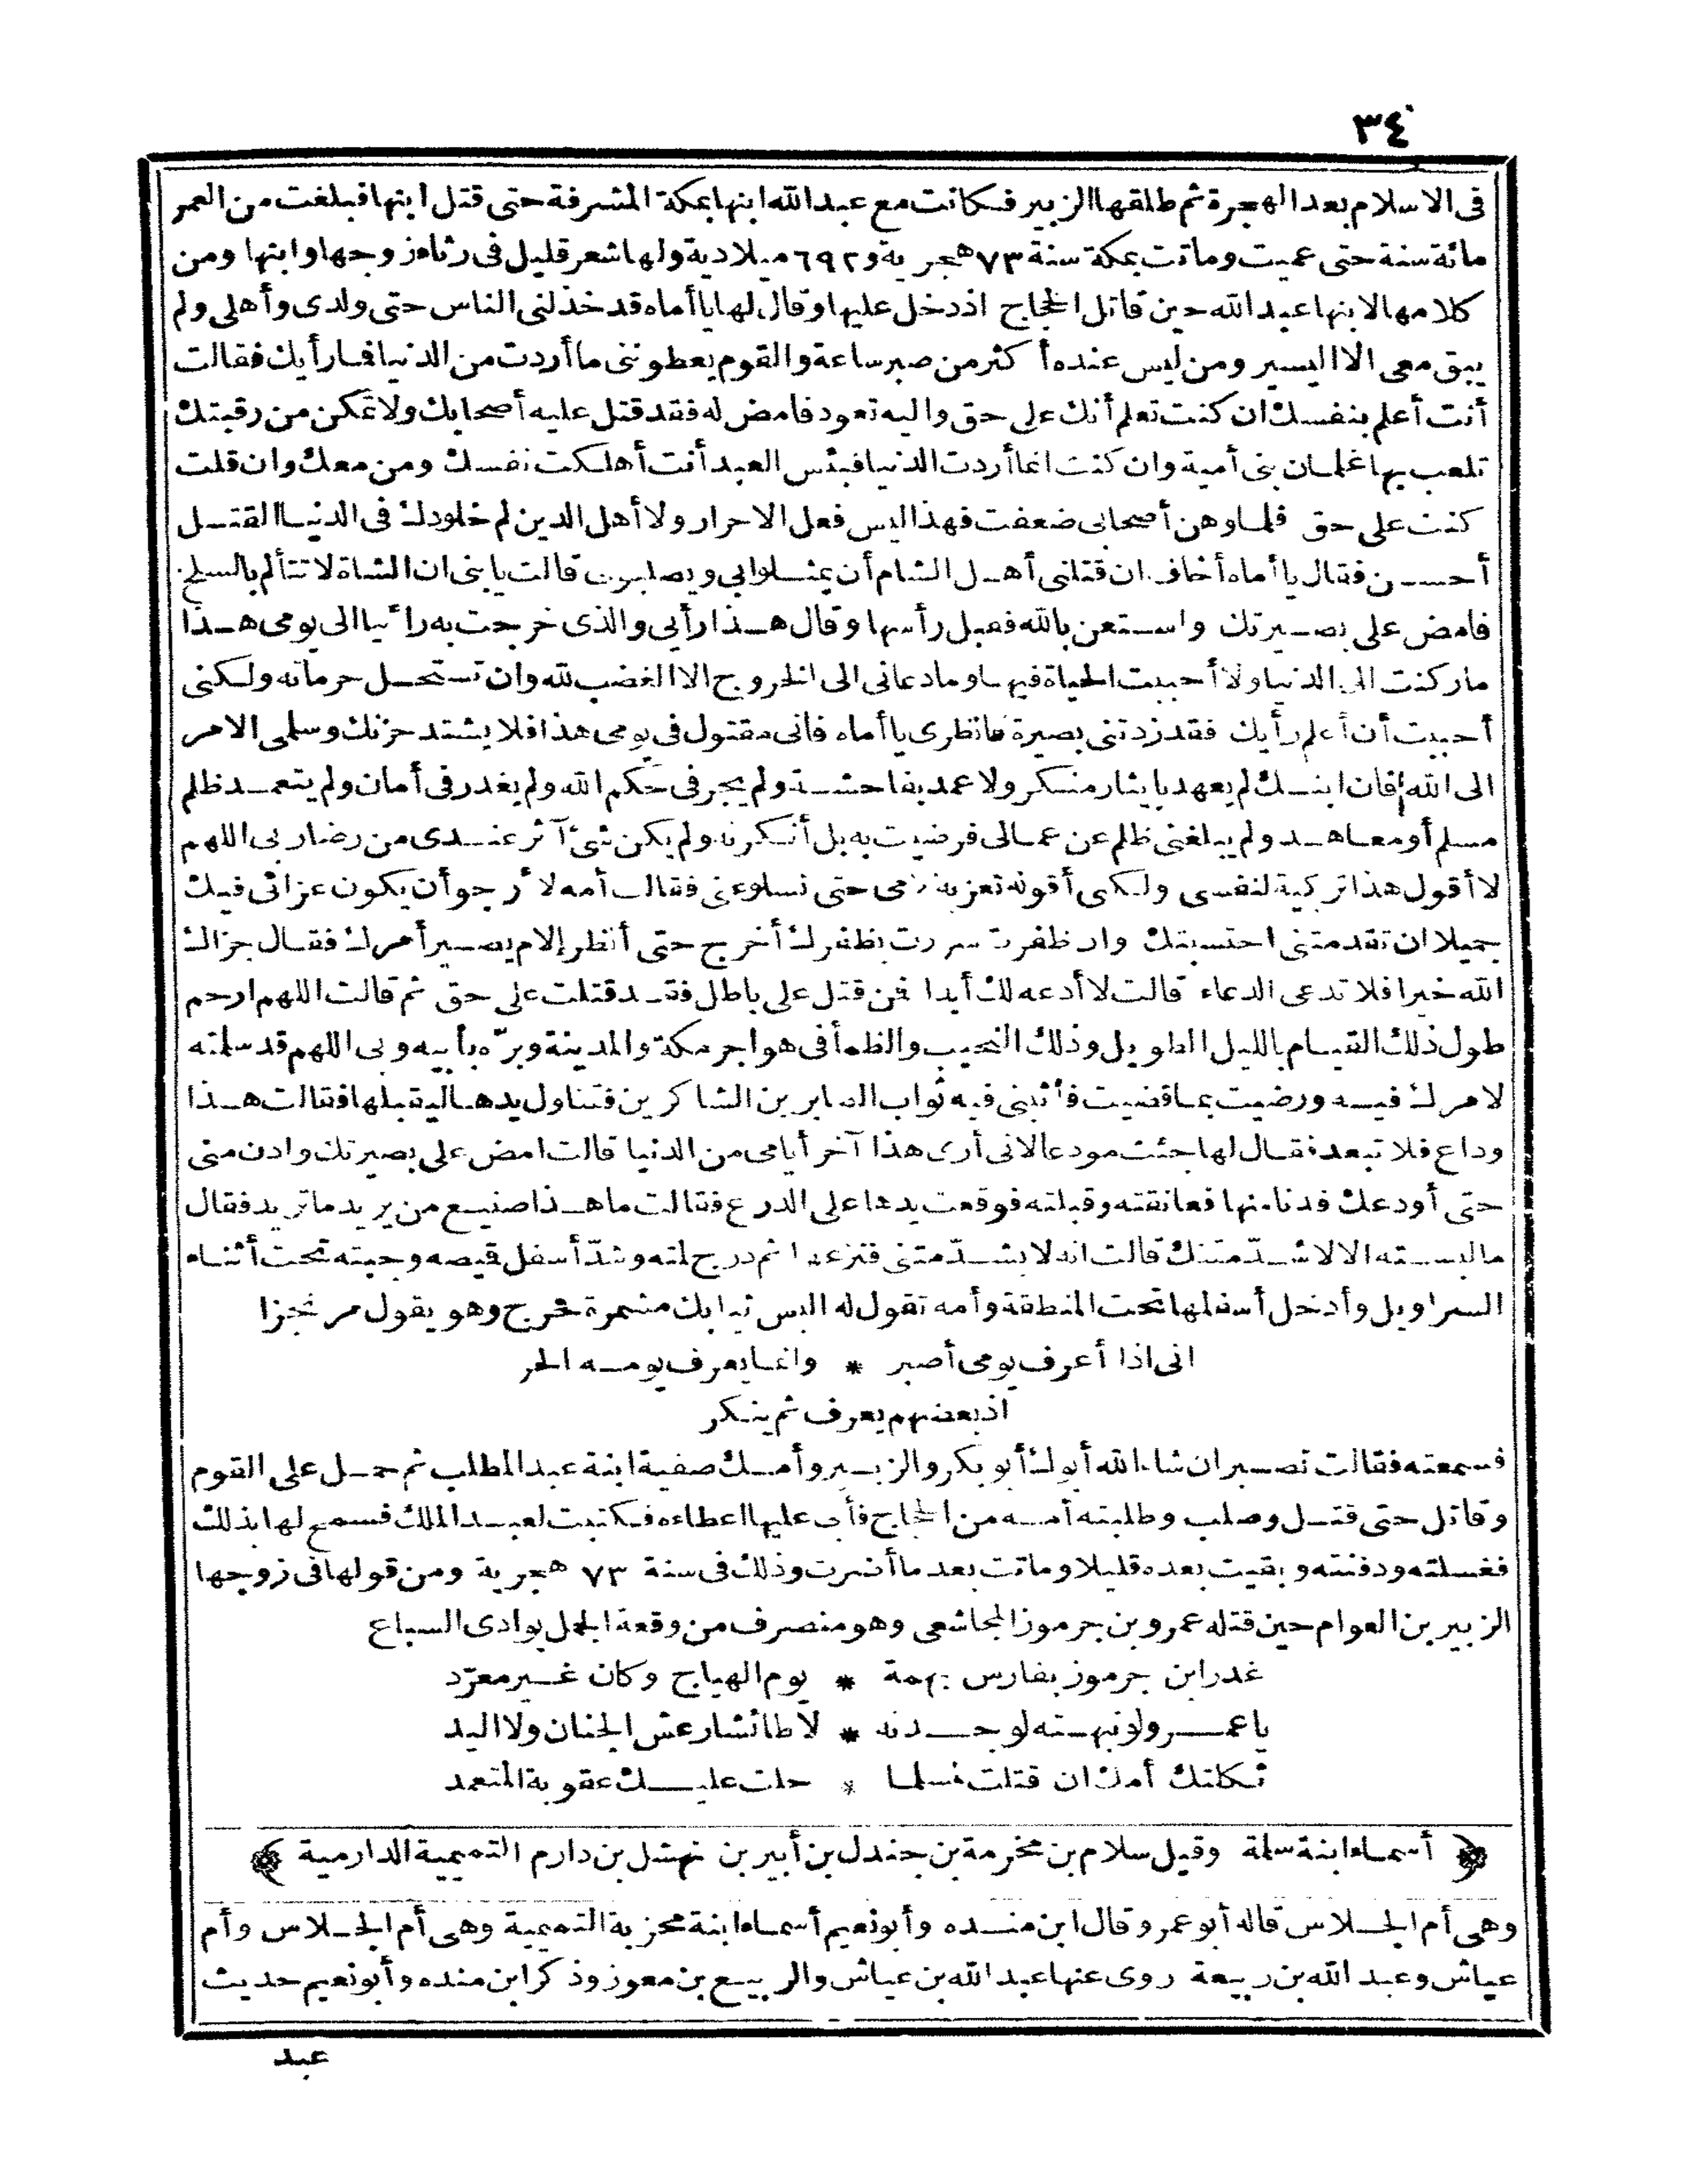 ٣٤
فى الاسلام بعد الهجرة ثم طلقها الزبير فكانت مع عبد الله ابنها بمكة المشرفة حتى قتل ابنها فبلغت من العمر
مائة سنة حتى عميت وماتت بمكة سنة ٧٣ هجرية و ٦٩٢ ميلادية ولها شعر قليل فى رثاء زوجها وابنها ومن
كلامها لابنها عبد الله حين قاتل الحجاج اذ دخل عليها وقال لها يا أماه قد خذلنى الناس حتى ولدى وأهلى ولم
يبق معى الا اليسير ومن ليس عنده أكثر من صبر ساعة والقوم يعطوننى ما أردت من الدنيا فما رأيك فقالت
أنت أعلم بنفسك ان كنت تعلم أنك على حق واليه تعود فامض له فقد قتل عليه أصحابك ولا تمكن من رقبتك
تلعب بها غلمان بنى أمية وان كنت انما أردت الدنيا فبئس العبد أنت أهلكت نفسك ومن معك وان قلت
كنت على حق فلما وهن أصحابى ضعفت فهذا ليس فعل الاحرار ولا أهل الدين لم خلودك فى الدنيا القتل
أحسن فقال يا أماه أخاف ان قتلنى أهل الشام أن يمثلوا بى ويصلبونى قالت يا بنى ان الشاة لا تتألم بالسلخ
فامض على بصيرتك واستعن بالله فقبل رأسها وقال هذا رأيى والذى خرجت به رائيا الى يومى هذا
ما ركنت الى الدنيا ولا أحببت الحياة فيها وما دعانى الى الخروج الا الغضب لله وان تستحل حرماته ولكنى
أحببت أن أعلم رأيك فقد زدتنى بصيرة فانظرى يا أماه فانى مقتول فى يومى هذا فلا يشتد حزنك وسلمى الامر
الى الله فان ابنك لم يعهد بايثار منكر ولا عمد بفاحشة ولم يجر فى حكم الله ولم يغدر فى أمان ولم يتعمد ظلم
مسلم أو معاهد ولم يبلغنى ظلم عن عمالى فرضيت به بل أنكرته ولم يكن شئ آثر عندى من رضا ربى اللهم
لا أقول هذا تزكية لنفسى ولكنى أقوله تعزية لامى حتى تسلو عنى فقالت أمه لأرجو أن يكون عزائى فيك
جميلا ان تقدمتنى احتسبتك وان ظفرت سررت بظفرك أخرج حتى أنظر إلام يصير أمرك فقال جزاك
الله خيرا فلا تدعى الدعاء قالت لا أدعه لك أبدا فمن قتل على باطل فقد قتلت على حق ثم قالت اللهم ارحم
طول ذلك القيام بالليل الطويل وذلك النحيب والظمأ فى هواجر مكة والمدينة وبرّه بأبيه وبى اللهم قد سلمته
لامرك فيه ورضيت بما قضيت فأثبنى فيه ثواب الصابرين الشاكرين فتناول يدها ليقبلها فقالت هذا
وداع فلا تبعد فقال لها جئت مودعا لانى أرى هذا آخر أيامى من الدنيا قالت امض على بصيرتك وادن منى
حتى أودعك فدنا منها فعانقته وقبلته فوقعت يدها على الدرع فقالت ما هذا صنيع من يريد ما تريد فقال
ما لبسته الا لاشدّ متنك قالت انه لا يشدّ متنى فنزعها ثم درج لمته وشدّ أسفل قميصه وجبته تحت أثناء
السراويل وأدخل أسفلها تحت المنطقة وأمه تقول له البس ثيابك مشمرة فخرج وهو يقول مرتجزا
انى اذا أعرف يومى أصبر * وانما يعرف يومه الحر
اذ بعضهم يعرف ثم ينكر
فسمعته فقالت تصبر ان شاء الله أبوك أبو بكر والزبير وأمك صفية ابنة عبد المطلب ثم حمل على القوم
وقاتل حتى قتل وصلب وطلبته أمه من الحجاج فأبى عليها اعطاءه فكتبت لعبد الملك فسمع لها بذلك
فغسلته ودفنته وبقيت بعده قليلا وماتت بعد ما أضرت وذلك فى سنة ٧٣ هجرية ومن قولها فى زوجها
الزبير بن العوام حين قتله عمرو بن جرموز المجاشعى وهو منصرف من وقعة الجمل بوادى السباع
غدر ابن جرموز بفارس بهمة * يوم الهياج وكان غير معرّد
يا عمرو لو نبهته لوجدته * لا طائشا رعش الجنان ولا اليد
ثكلتك أمك ان قتلت لمسلما * حلت عليك عقوبة المتعمد
﴿ أسماء ابنة سلمة وقيل سلام بن مخرمة بن جندل بن أبير بن نهشل بن دارم التميمية الدارمية ﴾
وهى أم الجلاس قاله أبو عمر وقال ابن منده وأبو نعيم أسماء ابنة مخربة التميمية وهى أم الجلاس وأم
عياش وعبد الله بن ربيعة روى عنها عبد الله بن عياش والربيع بن معوز وذكر ابن منده وأبو نعيم حديث
عبد